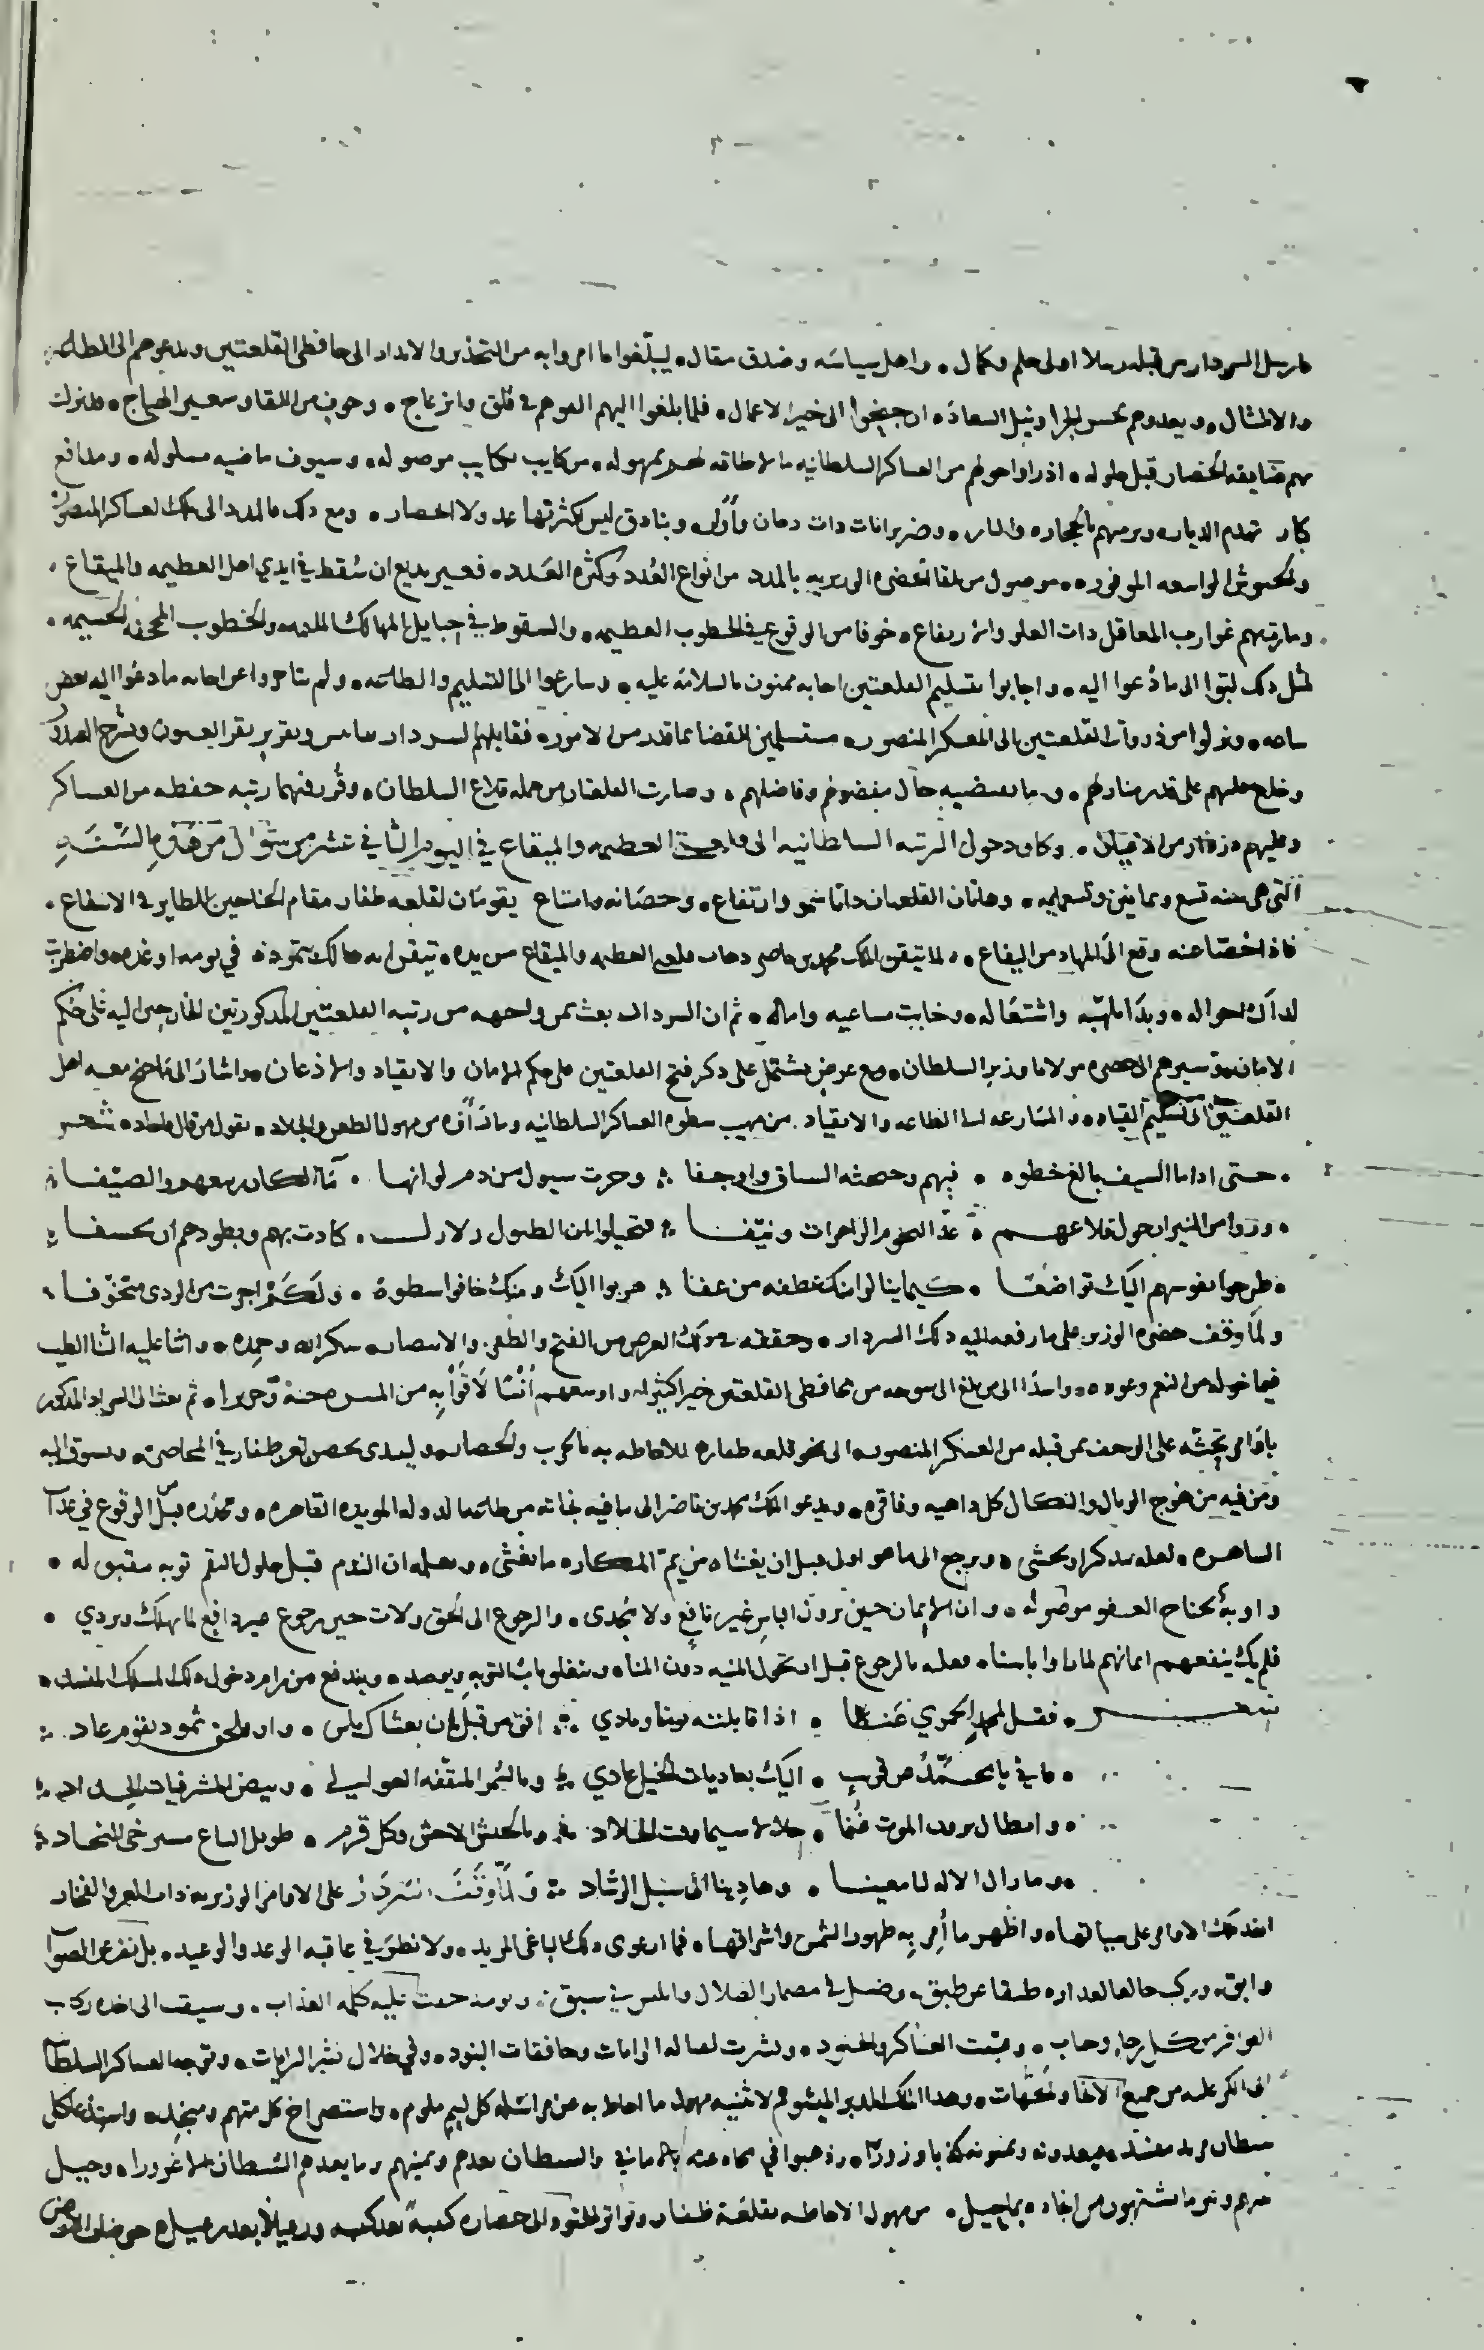 فارسل السردار من قبله رسلا اولى حلم وكمال. واهل سياسه وصدق مقال. ليبلّغوا ما امروا به من التحذير والانذار الى حافظى القلعتين ويدعوهم الى الطاعه
والامتثال. ويعدوهم بحسن الجزا ونيل السعاده ان جنحوا الى خير الاعمال. فلما بلغوا اليهم الفوهم في قلق وانزعاج. وخوف من اللقا
بهم مضايقه الحصار قبل حلوله. اذ راوا حولهم من العساكر السلطانيه ما لا طاقه لهم بمهوله. من كتايب بكتايب موصوله. وسيوف ماضيه مسلوله. ومدافع
كبار تهدم الديار. وترميهم بالحجاره والنار. وضربزانات ذات دخان وبنادق ليس لكثرتها عد ولا انحصار. ومع ذلك فالمدد الى تلك العساكر المنصوره
والجيوش الواسعه الموفوره. موصول من تلقا حضره الوزير بالمدد من انواع العُدد وكثره العَدد. فغير بديع ان سُقط في ايدي اهل العظيمه والميقاع.
وفارقتهم غوارب المعاقل ذات العلو والارتفاع. خوفا من الوقوع في الخطوب العظيمه. والسقوط في حبايل المهالك والخطوب الجسيمه.
لمثل ذلك لبّوا الى ما دُعوا اليه. واجابوا بتسليم القلعتين اجابه ممنون بالسلامه عليه. وسارعوا الى التسليم والطاعه. ولم يتاخروا عن اجابه ما دعُوا اليه بعض
ساعه. ونزلوا من ذروات القلعتين الى المعسكر المنصور. مستسلمين للقضا بما قدر من الامور. فقابلهم السردار وتقرير يقر العيون ويشرح الصدور
وخلع عليهم على قدر منازلهم. وما يقتضيه حال مفضولهم وفاضلهم. وصارت القلعتان من جمله قلاع السلطان. وقُرر فيهما رتبه حفظه من العساكر
وعليهم دزدار من الاعيان. وكان دخول الرتبه السلطانيه الى قلعة العظيمه والميقاع في اليوم الثاني عشر من شوّال من هذه السَّنَة
التى هى سنه تسع وثمانين وتسعمايه. وهاتان القلعتان ذاتا سمو وارتفاع. وحصانه وامتناع يقومان لقلعه ظفار مقام الجناحين للطاير في الارتفاع.
فاذا قصّا عنه وقع الى المهاد من اليفاع. ولما تيقن الملك محمد بن ناصر ذهاب قلعه العظيمه والميقاع من يده. تيقن انه هالك في يومه او غده. واضطربت
لذلك احواله. وبدا واشتغاله. وخابت مساعيه واماله. ثم ان السردار بعث بمن واجهه من رتبه القلعتين المذكورتين الخارجين اليه على حكم
الامان. وتسييرهم الى حضره مولانا وزير السلطان. مع عرض يشتمل على ذكر فتح القلعتين على حكم الامان والانقياد والاذعان. واشار الى ما جنح معه اهل
القلعتين الى تسليم القياد. والمسارعه الى الطاعه والانقياد. من مهيب سطوه العساكر السلطانيه وما راوه من مهول الطعن والجلاد. بقول من قال شعر
. حتى اذا ما السيف بالغ خطوه . فيهم وحصحه الساق واوجفا وجرت سيول من دم لوانها
. وراوا من النيران حول قلاعهم . عدّ النجوم الزاهرات ونيّفا فتخيلوا ان الطبول زلازل . كادت بهم وبطودهم ان تخسفا
. طرحوا نفوسهم اليك تواضعًا . كيما ينالوا منك عطفه من عفا هربوا اليك ومنك خافوا سطوة . ولكَم اجرت من الردى متخوّفا
ولمّا وقف حضره الوزير على ما رفعه اليه ذلك السردار. وحققه في ذلك العرض من الفتح والظفر والانتصار. شكر الله وحمده. واثنا عليه الثنا الطيب
فيما خوله من النعم وعوده. واسدا الى من بلغ الى سوحه من محافظى القلعتين خيرا كثيرا. واوسعهم أُنْسًا لاقوا به من المسره جنة وحريرا. ثم بعث الى السردار المذكور
باوامر تحثّه على الزحف بمن قبله من العسكر المنصوره الى نحو قلعه ظفار. للاحاطه به بالحرب والحصار. وليبدى بحصن تعز ظفار في المحاصره. ويسوق اليه
ومن فيه من ضروب الوبال والنكال كل داهيه وفاقره. ويدعو الملك محمد بن ناصر الى ما فيه نجاته من طاعه الدوله المويده القاهره. وتحذيره قبل الوقوع في عذاب
الساهره. لعله يتذكر او يخشى. ويرجع الى ما هو اولى قبل ان يغشاه من يم المكاره ما يغشى. ويعلمه ان الندم قبل حلول النقم توبه مقبوله.
واوبةٌ بجناح العفو موصوله. وان الايمان حين نزول الباس غير نافع ولا يُجدى. والرجوع الى الحق ولات حين رجوع غير دافع لما يهلك ويردي.
فلم يك ينفعهم ايمانهم لما راوا باسنا. فعليه بالرجوع قبل ان تحول المنيه دون المنا. ويتغلق باب التوبه ويوصد. ويندفع من رام دخول تلك المسالك
شعر . فقل لمحمد الحمزي عنا . اذا قابلته يوما ونادي افق من قبل ان يغشاك باس . واردا يلحق ثمود بقوم عاد
. فاني يا محمّد عن قريب . اليك بعاديات الخيل عادي وبالسُمر المثقفه العوالي . وبيض المشرفيات الحداد
. وابطال يرون الموت غُنما . جلاد لا سيما وقت الجلاد وبالجيش الاجش وكل قرم . طويل الباع مسترخي النجاد
. وما زال الاله لنا معينا . وهادينا الى سُبل الرشاد ولَمَّا وَقَفَ السّردَار على الاوامر الوزيريه ذات العز والفخار
انفذ تلك الاوامر على سبالتها. واظهر ما أُمِر به ظهور الشمس واشراقها. فما ارعوى ذلك الباغى المريد. ولا نظر في عاقبه الوعد والوعيد. بل نفر عن الصواب
وابق. وركب حالها لعداره طبقا عن طبق. وضل في مضمار الضلال والمين في سبق. ويومئذ حقت عليه كلمه العذاب. وسيقت الى اخذه ركاب
العوافر من كل رجا وجاب. وعبّت العساكر والجنود. ونشرت لقتاله الرايات وخافقات البنود. وفي خلال نشر الرايات. وتوجه العساكر السلطانيه
الى الكر عليه من جميع الانحا والجهات. وهذا الملك المدبر الميشوم لا يثنيه مهول ما احاط به عن مراسله كل ليم ملوم. واستصراخ كل متهم ومنجد. واستدعا كل
شيطان مريد مفسد. فيعدونه ويمنونه كذبا وزورًا. وذهبوا في نجاه عنه بالاماني والشيطان يعدهم ويمنيهم وما يعدهم الشيطان الا غرورا. وحيل
بينهم وبين ما يشتهون من انجاده بما حيل. من مهول الاحاطه بقلعة ظفار وتواتر الجنود الى حصاره كتيبة بعد كتيبه ورعيلاً بعد رعيل. حتى ضاق الارض